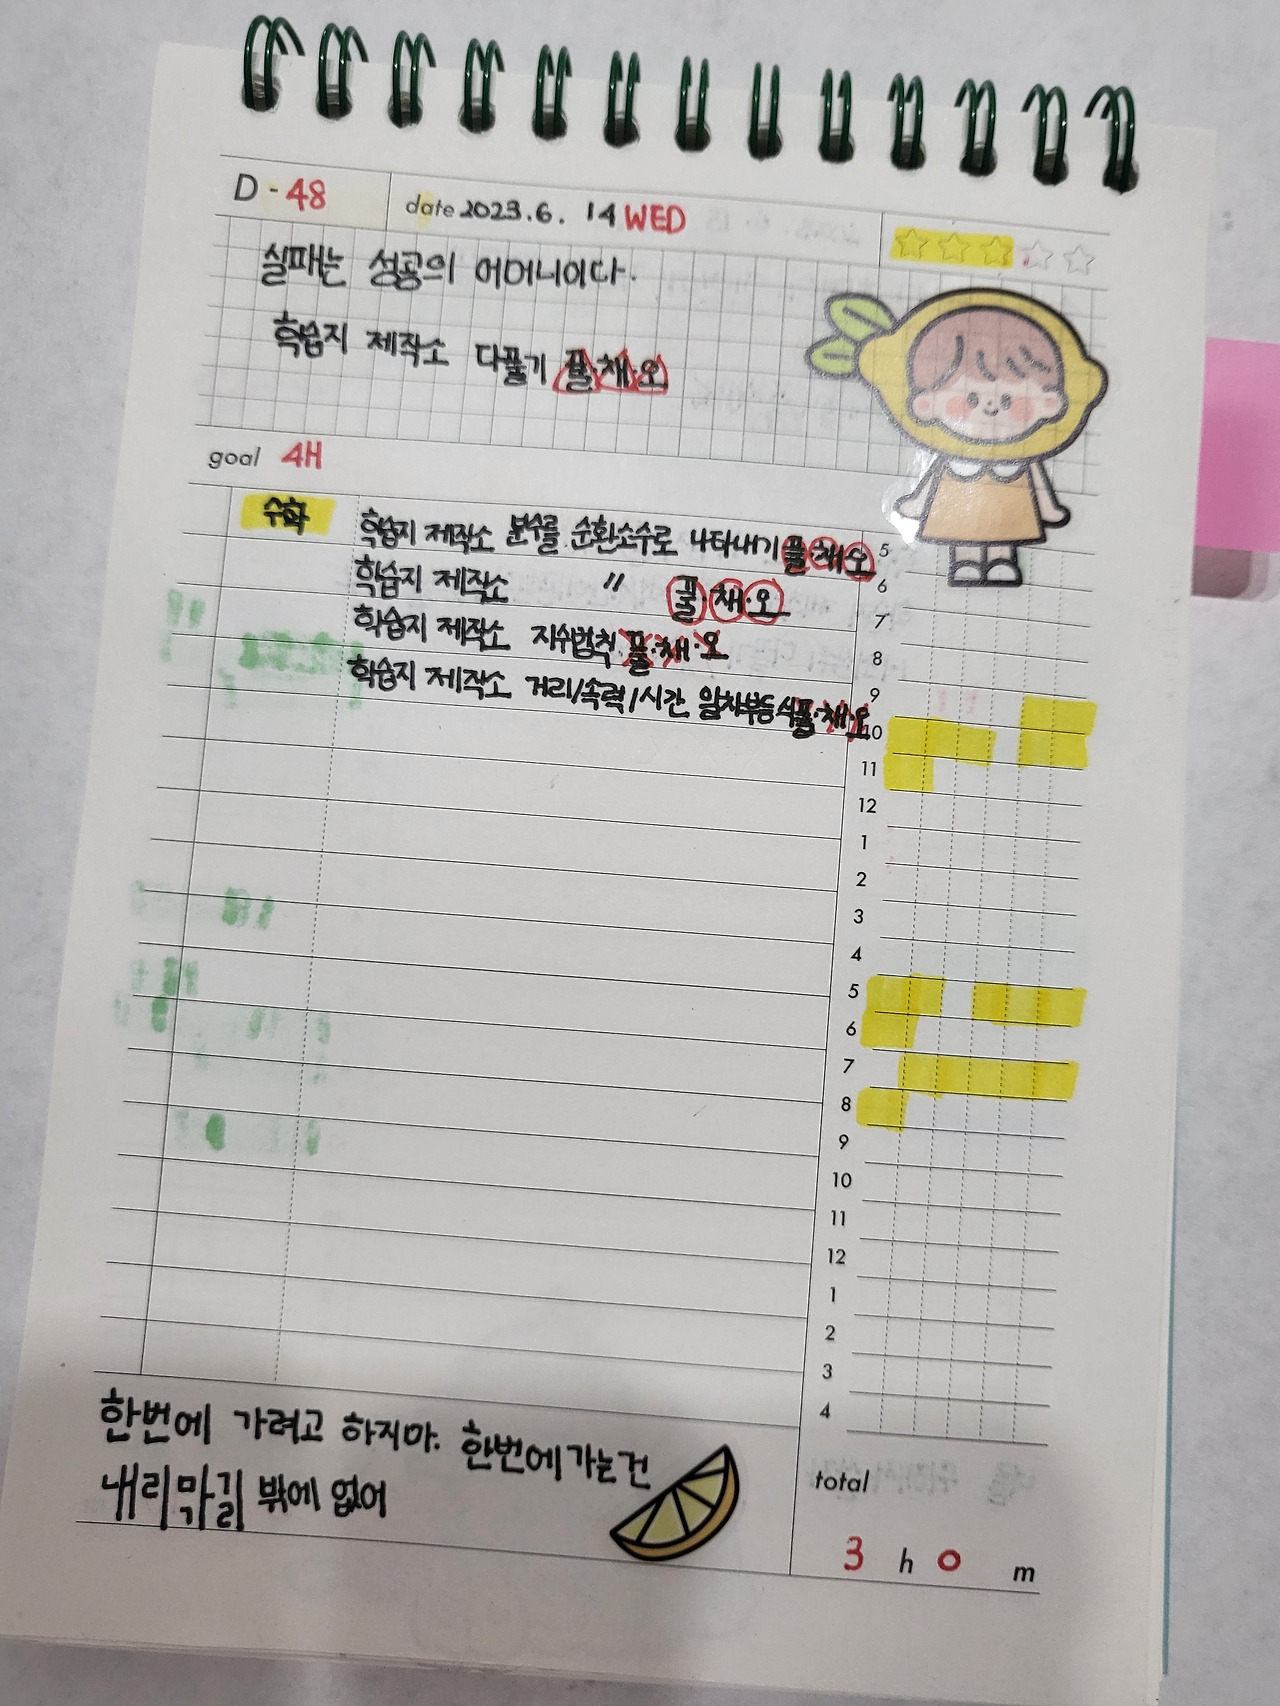 D - 48
date 2023.6. 14 WED
실패는 성공의 어머니이다.
학습지 제작소 다풀기 풀·채·오
goal 4H
수학 학습지 제작소 분수를 순환소수로 나타내기 풀·채·오
학습지 제작소 〃 풀·채·오
학습지 제작소 지수법칙 풀·채·오
학습지 제작소 거리/속력/시간 일차부등식 풀·채·오
5
6
7
8
9
10
11
12
1
2
3
4
5
6
7
8
9
10
11
12
1
2
3
4
한번에 가려고 하지마. 한번에 가는건
내리막길 밖에 없어
total
3 h 0 m